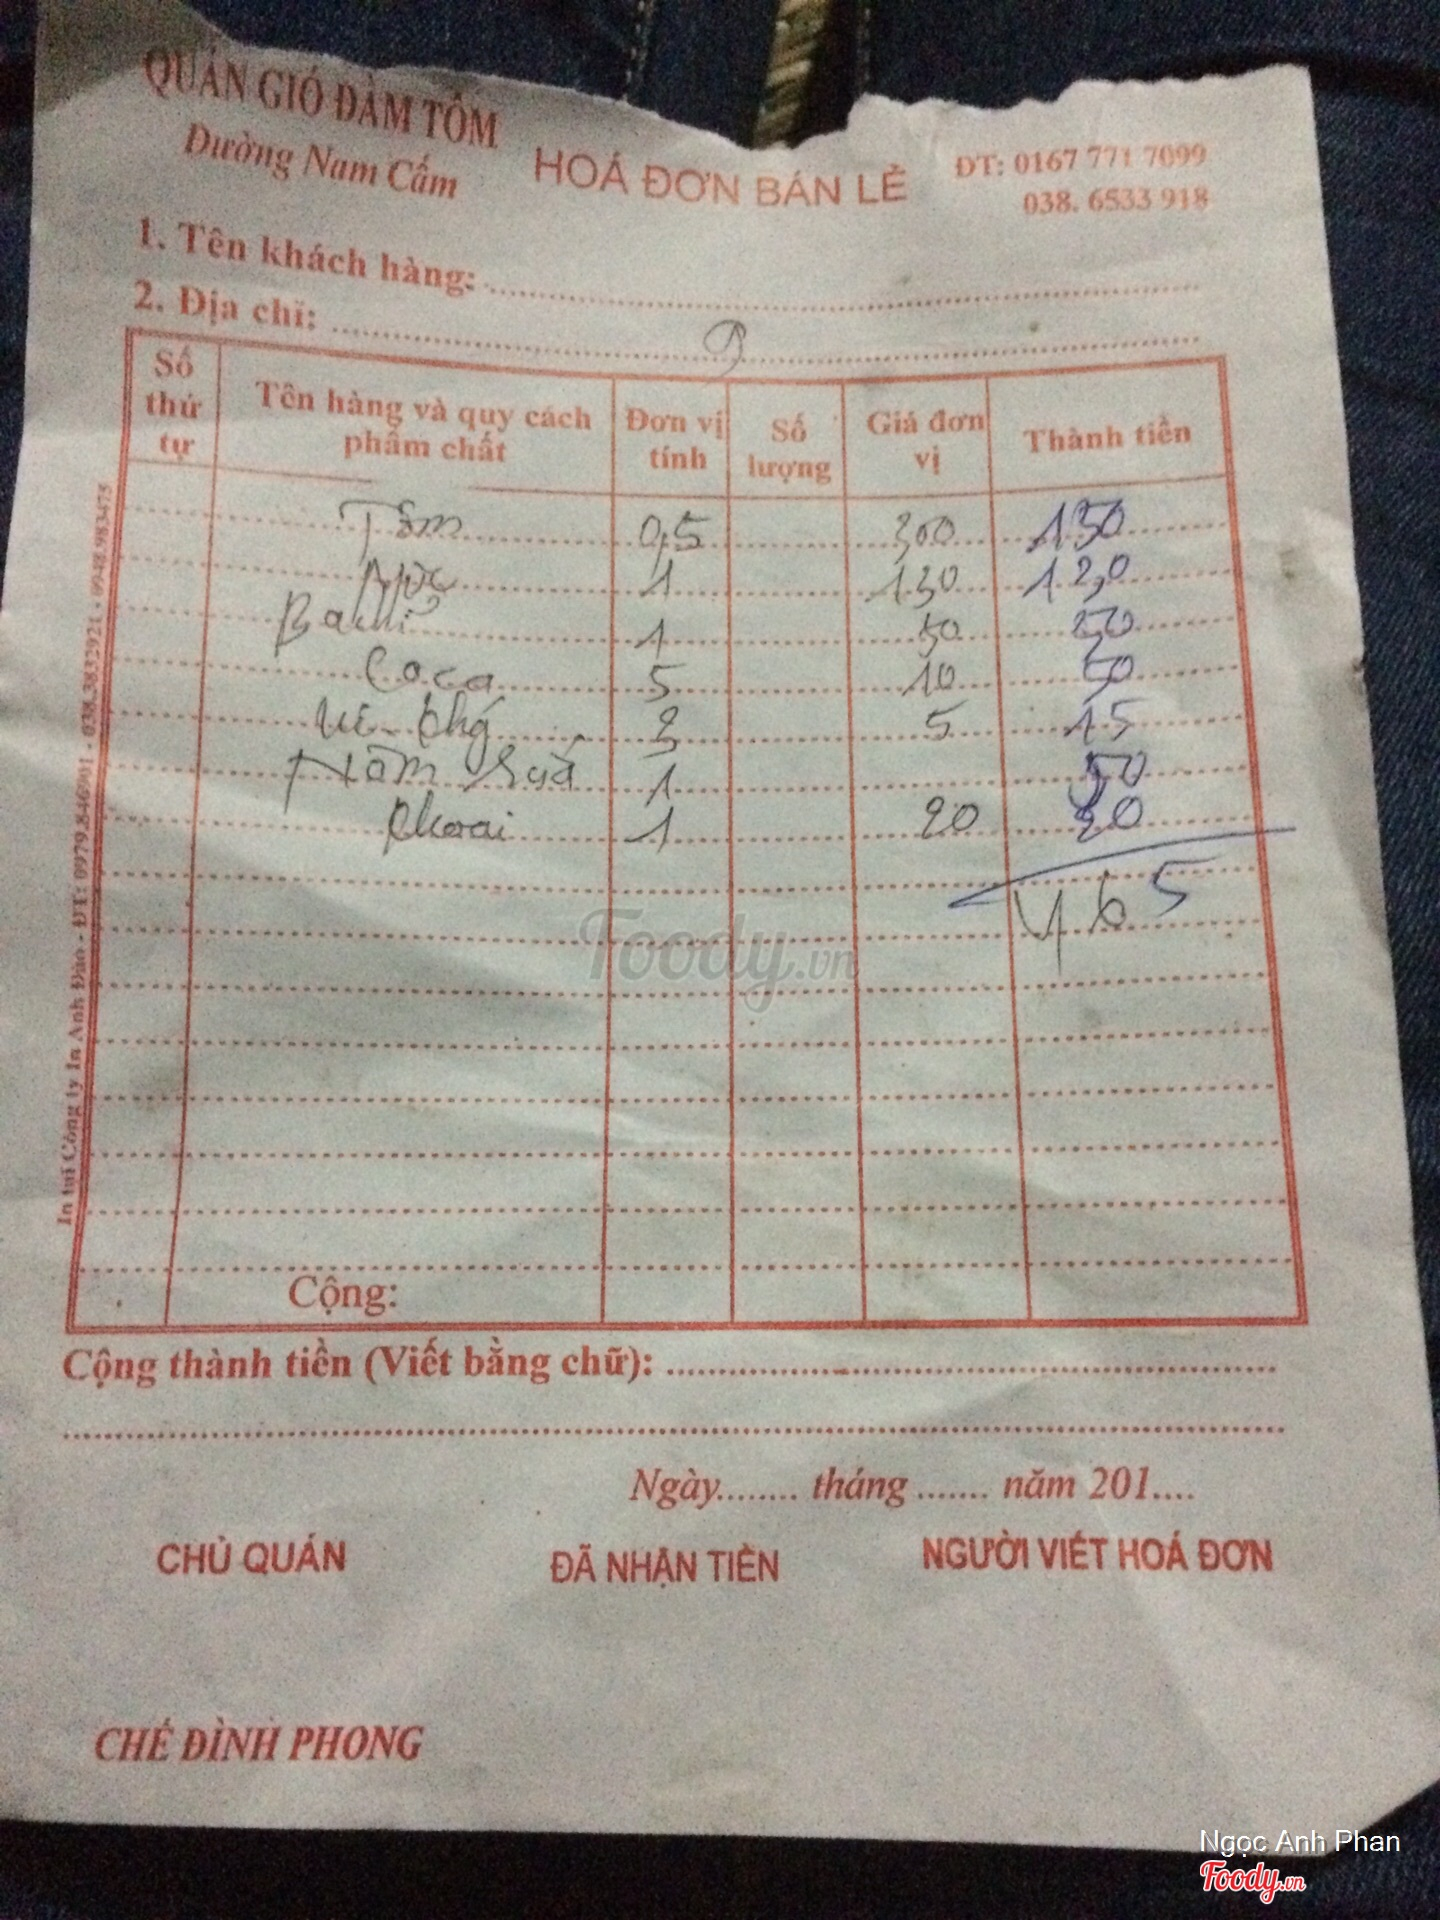 QUÁN GIÓ ĐẦM TÔM
Đường Nam Cấm
HOÁ ĐƠN BÁN LẺ
ĐT: 0167 771 7099
038. 6533 918
1. Tên khách hàng:
2. Địa chỉ:
Số thứ tự Tên hàng và quy cách phẩm chất Đơn vị tính Số lượng Giá đơn vị Thành tiền
Tôm 0,5 300 150
1 130 130
1 50 50
Coca 5 10 50
3 5 15
Nộm sứa 1 50
Khoai 1 20 20
465
Cộng:
Cộng thành tiền (Viết bằng chữ):
Ngày........ tháng ....... năm 201....
CHỦ QUÁN ĐÃ NHẬN TIỀN NGƯỜI VIẾT HOÁ ĐƠN
CHẾ ĐÌNH PHONG
In tại Công ty In Anh Đào - ĐT: 0979.846901 - 038.3832921 - 0948.983475
Foody.vn
Ngọc Anh Phan
Foody.vn